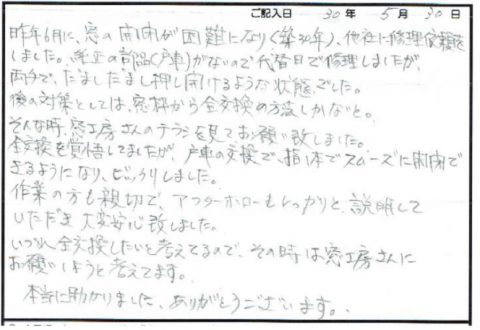 ご記入日 30年 5月 30日
昨年6月に、窓の開閉が困難になり(築30年)、他社に修理依頼を
しました。純正の部品(戸車)がないので代替品で修理しましたが、
両手で、だましだまし押し開けるような状態でした。
後の対策としては、窓枠から全交換の方法しかないと。
そんな時、窓工房さんのチラシを見てお願い致しました。
全交換を覚悟してましたが、戸車の交換で、指1本でスムーズに開閉で
きるようになり、ビックリしました。
作業の方も親切で、アフターホローもしっかりと、説明して
いただき大変安心致しました。
いつか全交換したいと考えてるので、その時は窓工房さんに
お願いしようと考えてます。
本当に助かりました、ありがとうございます。